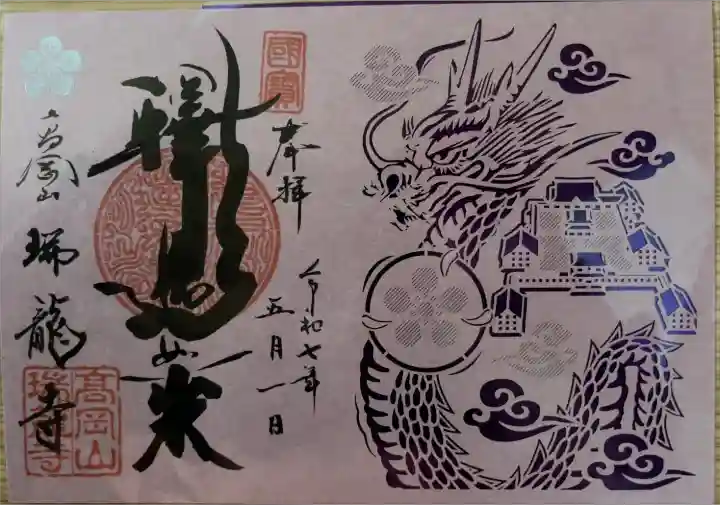 國寳
奉拝
令和七年
五月一日
釋迦如来
高岡山
瑞龍寺
高岡山
瑞龍寺